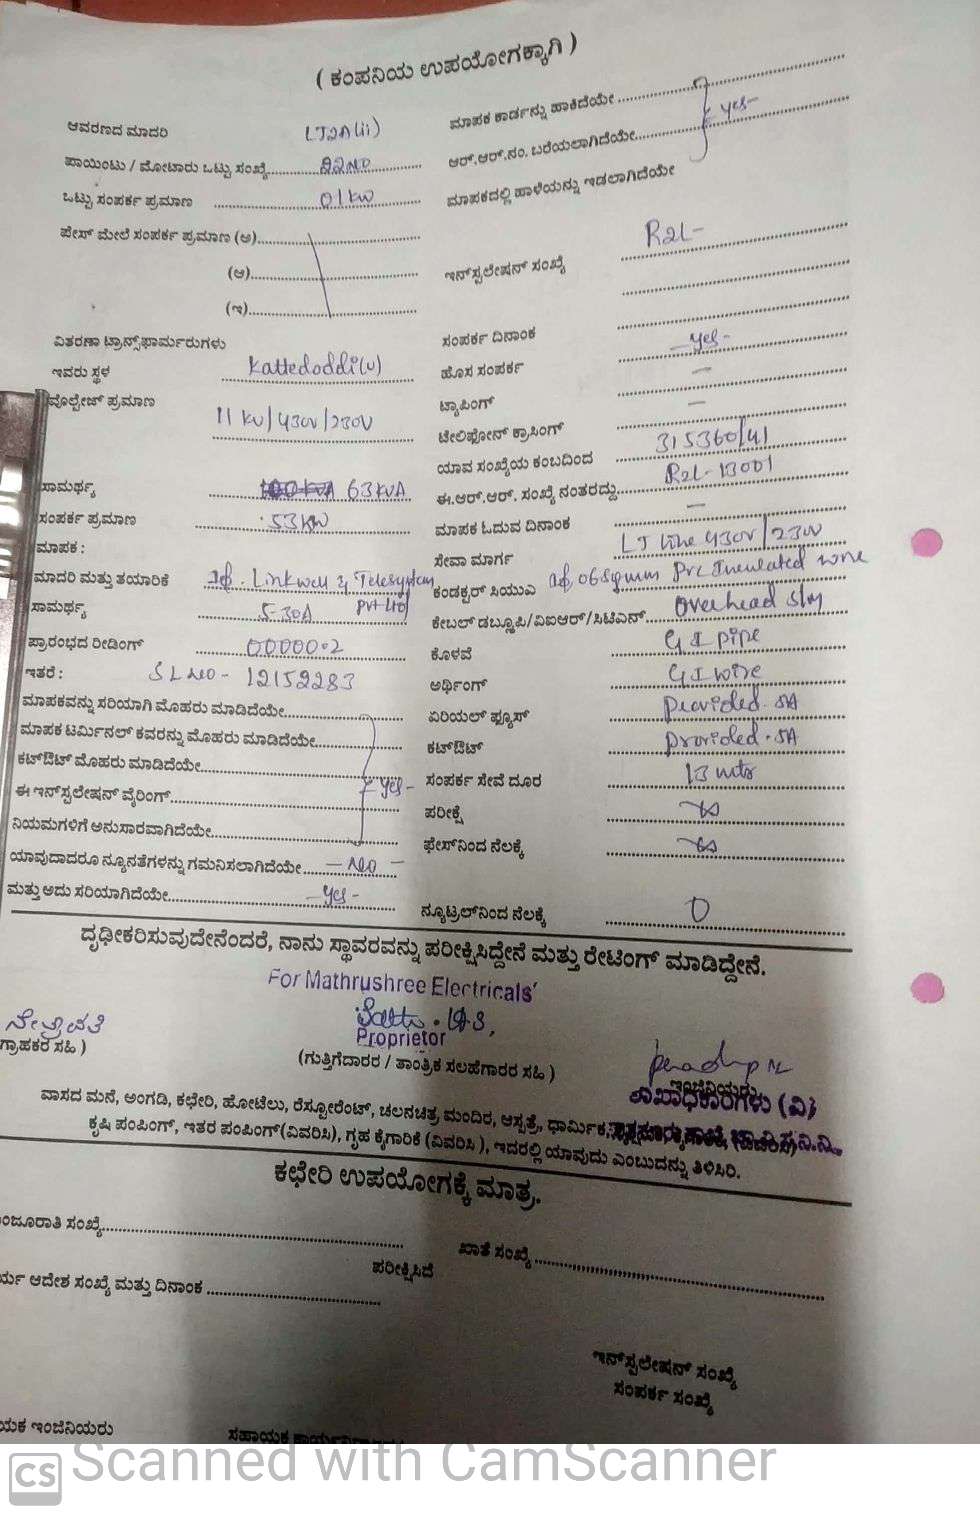 ( ಕಂಪನಿಯ ಉಪಯೋಗಕ್ಕಾಗಿ )
ಆವರಣದ ಮಾದರಿ LT2A(ii)
ಪಾಯಿಂಟು / ಮೋಟಾರು ಒಟ್ಟು ಸಂಖ್ಯೆ
ಒಟ್ಟು ಸಂಪರ್ಕ ಪ್ರಮಾಣ 01kw
ಪೇಸ್ ಮೇಲೆ ಸಂಪರ್ಕ ಪ್ರಮಾಣ (ಅ)
(ಆ)
(ಇ)
ವಿತರಣಾ ಟ್ರಾನ್ಸ್‌ಫಾರ್ಮರುಗಳು
ಇವರು ಸ್ಥಳ Kattedoddi(v)
ವೊಲ್ಟೇಜ್ ಪ್ರಮಾಣ 11 kv/430v/230v
ಸಾಮರ್ಥ್ಯ 63 KVA
ಸಂಪರ್ಕ ಪ್ರಮಾಣ 53KW
ಮಾಪಕ :
ಮಾದರಿ ಮತ್ತು ತಯಾರಿಕೆ 1ф. Linkwell Telesystem Pvt Ltd
ಸಾಮರ್ಥ್ಯ 5-30A
ಪ್ರಾರಂಭದ ರೀಡಿಂಗ್ 00000.2
ಇತರೆ : SL NO - 12152283
ಮಾಪಕವನ್ನು ಸರಿಯಾಗಿ ಮೊಹರು ಮಾಡಿದೆಯೇ
ಮಾಪಕ ಟರ್ಮಿನಲ್ ಕವರನ್ನು ಮೊಹರು ಮಾಡಿದೆಯೇ
ಕಟ್‌ಔಟ್ ಮೊಹರು ಮಾಡಿದೆಯೇ
yes -
ಈ ಇನ್‌ಸ್ಟಲೇಷನ್ ವೈರಿಂಗ್
ನಿಯಮಗಳಿಗೆ ಅನುಸಾರವಾಗಿದೆಯೇ
ಯಾವುದಾದರೂ ನ್ಯೂನತೆಗಳನ್ನು ಗಮನಿಸಲಾಗಿದೆಯೇ - NO -
ಮತ್ತು ಅದು ಸರಿಯಾಗಿದೆಯೇ - yes -
ಮಾಪಕ ಕಾರ್ಡನ್ನು ಹಾಕಿದೆಯೇ
ಆರ್.ಆರ್.ನಂ. ಬರೆಯಲಾಗಿದೆಯೇ yes -
ಮಾಪಕದಲ್ಲಿ ಹಾಳೆಯನ್ನು ಇಡಲಾಗಿದೆಯೇ
R2L-
ಇನ್‌ಸ್ಟಲೇಷನ್ ಸಂಖ್ಯೆ
ಸಂಪರ್ಕ ದಿನಾಂಕ
ಹೊಸ ಸಂಪರ್ಕ - yes -
ಟ್ಯಾಪಿಂಗ್ -
ಟೇಲಿಫೋನ್ ಕ್ರಾಸಿಂಗ್ -
ಯಾವ ಸಂಖ್ಯೆಯ ಕಂಬದಿಂದ 315360/41
ಈ.ಆರ್.ಆರ್. ಸಂಖ್ಯೆ ನಂತರದ್ದು R2L-13001
ಮಾಪಕ ಓದುವ ದಿನಾಂಕ -
ಸೇವಾ ಮಾರ್ಗ LT line 430v/230v
ಕಂಡಕ್ಟರ್ ಸಿಯುವಿ 1ф, 06sqmm PVC Insulated wire
ಕೇಬಲ್ ಡಬ್ಲೂಪಿ/ವಿಐಆರ್/ಸಿಟಿಎನ್ Overhead
ಕೊಳವೆ G I pipe
ಅರ್ಥಿಂಗ್ G I wire
ಏರಿಯಲ್ ಫ್ಯೂಸ್ Provided. 5A
ಕಟ್‌ಔಟ್ provided. 5A
ಸಂಪರ್ಕ ಸೇವೆ ದೂರ 13 mts
ಪರೀಕ್ಷೆ ∞
ಫೇಸ್‌ನಿಂದ ನೆಲಕ್ಕೆ ∞
ನ್ಯೂಟ್ರಲ್‌ನಿಂದ ನೆಲಕ್ಕೆ 0
ದೃಢೀಕರಿಸುವುದೇನೆಂದರೆ, ನಾನು ಸ್ಥಾವರವನ್ನು ಪರೀಕ್ಷಿಸಿದ್ದೇನೆ ಮತ್ತು ರೇಟಿಂಗ್ ಮಾಡಿದ್ದೇನೆ.
For Mathrushree Electricals'
ನೇತ್ರಾವತಿ
Proprietor
ಗ್ರಾಹಕರ ಸಹಿ )
(ಗುತ್ತಿಗೆದಾರರ / ತಾಂತ್ರಿಕ ಸಲಹೆಗಾರರ ಸಹಿ )
ಇಂಜಿನಿಯರು
ಶಾಖಾಧಿಕಾರಿಗಳು (ವಿ)
ವಾಸದ ಮನೆ, ಅಂಗಡಿ, ಕಛೇರಿ, ಹೋಟೆಲು, ರೆಸ್ಟೋರೆಂಟ್, ಚಲನಚಿತ್ರ ಮಂದಿರ, ಆಸ್ಪತ್ರೆ, ಧಾರ್ಮಿಕ,
ಕೃಷಿ ಪಂಪಿಂಗ್, ಇತರ ಪಂಪಿಂಗ್(ವಿವರಿಸಿ), ಗೃಹ ಕೈಗಾರಿಕೆ (ವಿವರಿಸಿ ), ಇದರಲ್ಲಿ ಯಾವುದು ಎಂಬುದನ್ನು ತಿಳಿಸಿರಿ.
ಕಛೇರಿ ಉಪಯೋಗಕ್ಕೆ ಮಾತ್ರ.
ಂಜೂರಾತಿ ಸಂಖ್ಯೆ
ಖಾತೆ ಸಂಖ್ಯೆ
ಪರೀಕ್ಷಿಸಿದೆ
ರ್ಯ ಆದೇಶ ಸಂಖ್ಯೆ ಮತ್ತು ದಿನಾಂಕ
ಇನ್‌ಸ್ಟಲೇಷನ್ ಸಂಖ್ಯೆ
ಸಂಪರ್ಕ ಸಂಖ್ಯೆ
ಯಕ ಇಂಜಿನಿಯರು
CS Scanned with CamScanner